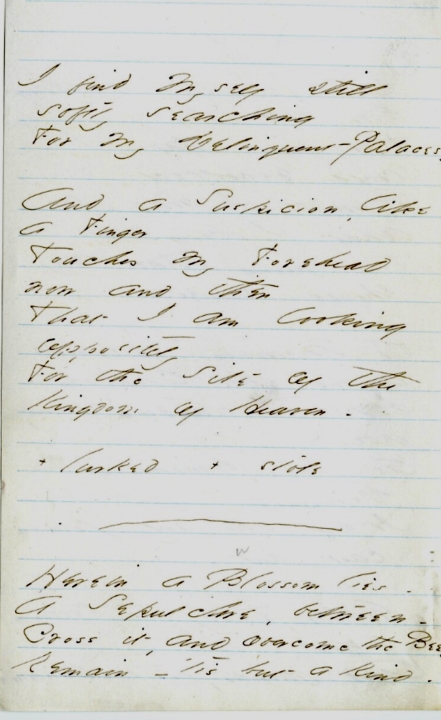 I find myself still
softly searching
For my Delinquent Palaces,
And a Suspicion, like
a Finger
Touches my Forehead
now and then
That I am looking
oppositely
For the Site of the
Kingdom of Heaven.
+ lurked + stole
Herein a Blossom lies -
A Sepulchre, between -
Cross it, and overcome the Bee
Remain - 'tis but a Rind.